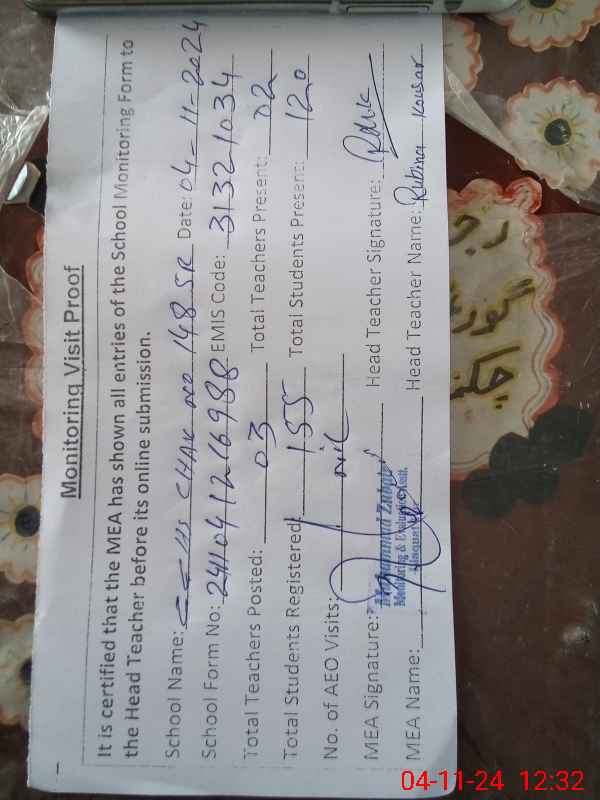 Monitoring Visit Proof
It is certified that the MEA has shown all entries of the School Monitoring Form to
the Head Teacher before its online submission.
School Name: GGHS CHAK NO 148 SR Date: 04-11-2024
School Form No: 241041216988 EMIS Code: 31321034
Total Teachers Posted: 03 Total Teachers Present: 02
Total Students Registered: 155 Total Students Present: 120
No. of AEO Visits: nil
MEA Signature: Head Teacher Signature:
Muhammad Zubair
Monitoring & Evaluation Asstt.
MEA Name: Head Teacher Name: Rubina Kousar
04-11-24 12:32